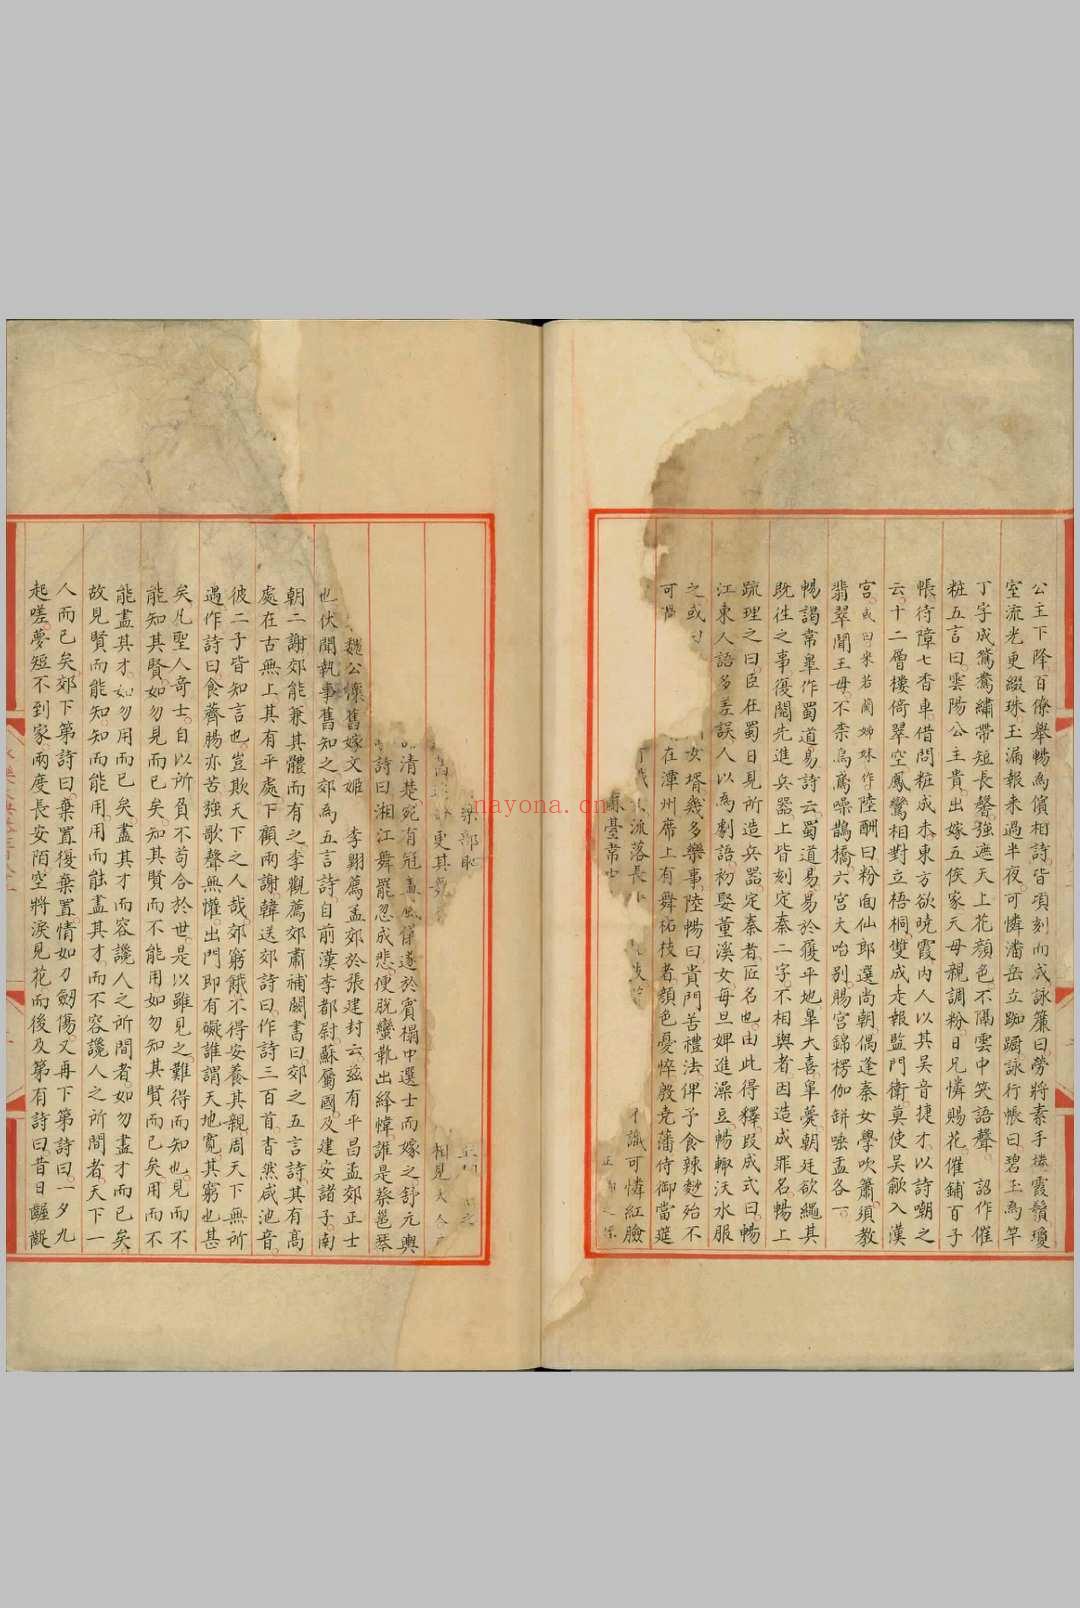 公主下降百僚舉暢為儐相詩皆頃刻而成詠簾曰勞將素手捲霞鬚瓊
室流光更綴珠玉漏報來過半夜可憐潘岳立踟躕詠行帳曰碧玉為竿
丁字成鴛鴦繡帶短長馨強遮天上花顏色不隔雲中笑語聲 詔作催
粧五言曰雲陽公主貴出嫁五侯家天母親調粉日兄憐賜花催鋪百子
帳待障七香車借問粧成未東方欲曉霞内人以其吳音捷才以詩嘲之
云十二層樓倚翠空鳳鸞相對立梧桐雙成走報監門衛莫使吳歈入漢
宮或曰宋若蘭姊妹作陸酬曰粉面仙郎選尚朝偶逢秦女學吹簫須教
翡翠聞王母不柰烏鳶噪鵲橋六宮大咍別賜宮錦楞伽缾唾盂各一
暢謁常皐作蜀道易詩云蜀道易易於履平地皐大喜皐薨朝廷欲繩其
既往之事復閱先進兵器上皆刻定秦二字不相與者因造成罪名暢上
疏理之曰臣在蜀日見所造兵器定秦者匠名也由此得釋段成式曰暢
江東人語多差誤人以為劇語初娶董溪女每旦婢進澡豆暢輙沃水服
之或 女壻幾多樂事陸暢曰貴門苦禮法俾予食辣麨殆不
可 在潭州席上有舞柘枝者顏色憂悴殷堯藩侍御當筵
流落長 不識可憐紅臉
臺常
樂部恥
更其舞 相見大合
清楚宛有冠蓋風儀遂於賓榻中選士而嫁之舒元輿
詩曰湘江舞罷忽成悲便脫蠻靴出絳幃誰是蔡邕琴
魏公懷舊嫁文姬 李翺薦孟郊於張建封云茲有平昌孟郊正士
也伏聞執事舊知之郊為五言詩自前漢李都尉蘇屬國及建安諸子南
朝二謝郊能兼其體而有之李觀薦郊肅補闕書曰郊之五言詩其有高
處在古無上其有平處下顧兩謝韓送郊詩曰作詩三百首杳然咸池音
彼二子皆知言也豈欺天下之人哉郊窮餓不得安養其親周天下無所
遇作詩曰食薺腸亦苦強歌聲無懽出門即有礙誰謂天地寬其窮也甚
矣凡聖人奇士自以所負不苟合於世是以雖見之難得而知也見而不
能知其賢如勿見而已矣知其賢而不能用如勿知其賢而已矣用而不
能盡其才如勿用而已矣盡其才而容讒人之所間者如勿盡才而已矣
故見賢而能知知而能用用而能盡其才而不容讒人之所間者天下一
人而已矣郊下第詩曰棄置復棄置情如刀劒傷又再下第詩曰一夕九
起嗟夢短不到家兩度長安陌空將淚見花而後及第有詩曰昔日齷齪
nayona.cn